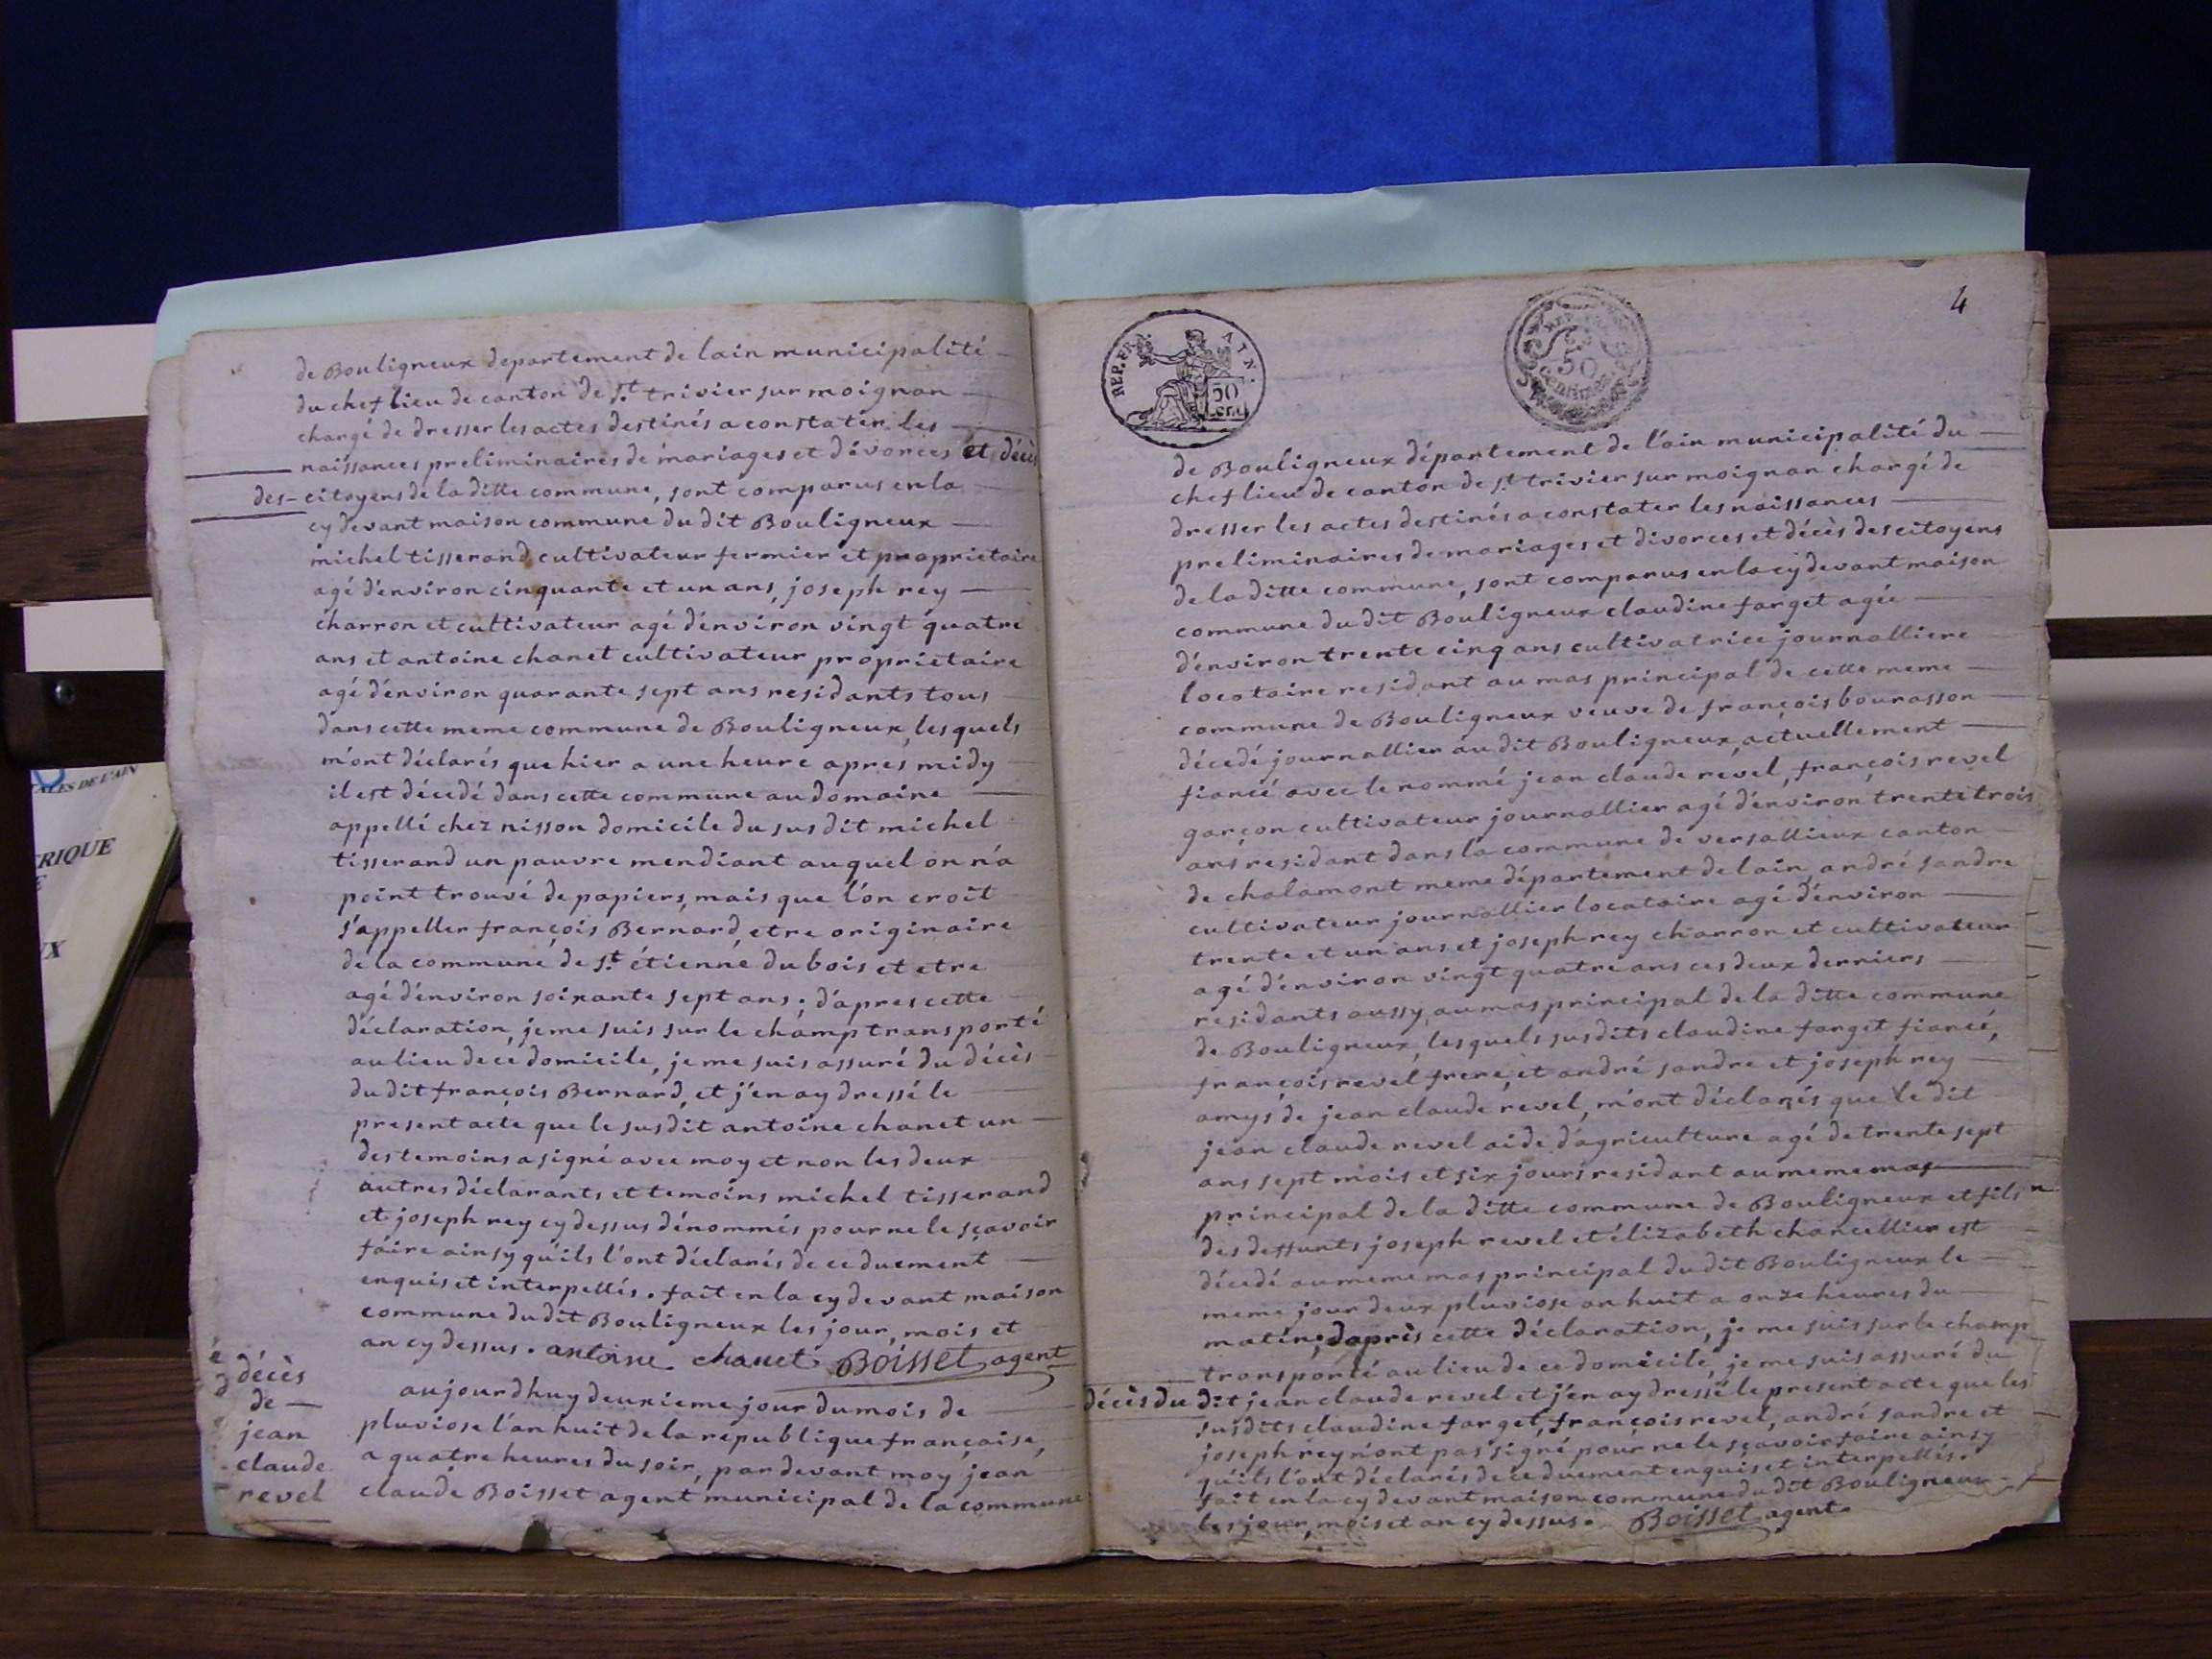 de Bouligneux departement de lain municipalité
du chef lieu de canton de st. trivier sur moignan
chargé de dresser les actes destinés a constater les
naissances preliminaires de mariages et divorces et décès
des citoyens de la ditte commune, sont comparus en la
cy devant maison commune du dit Bouligneux
michel tisserand cultivateur fermier et proprietaire
agé d'environ cinquante et un ans, joseph rey
charron et cultivateur agé d'environ vingt quatre
ans et antoine chanet cultivateur proprietaire
agé d'environ quarante sept ans residants tous
dans cette meme commune de Bouligneux, les quels
m'ont déclarés que hier a une heure apres midy
il est décedé dans cette commune au domaine
appellé chez nisson domicile du sus dit michel
tisserand un pauvre mendiant au quel on n'a
point trouvé de papiers, mais que l'on croit
s'appeller françois Bernard, etre originaire
de la commune de st. étienne du bois et etre
agé d'environ soixante sept ans; d'apres cette
déclaration, je me suis sur le champ transporté
au lieu de ce domicile, je me suis assuré du décès
du dit françois Bernard, et j'en ay dressé le
present acte que le sus dit antoine chanet un
des temoins a signé avec moy et non les deux
autres déclarants et temoins michel tisserand
et joseph rey cy dessus dénommés pour ne le sçavoir
faire ainsy qu'ils l'ont déclarés de ce duement
enquis et interpellés. fait en la cy devant maison
commune du dit Bouligneux les jour, mois et
an cy dessus. antoine chanet Boisset agent
décès
de
jean
claude
revel
aujourdhuy deuxieme jour du mois de
pluviose l'an huit de la republique française,
a quatre heures du soir, par devant moy jean
claude Boisset agent municipal de la commune
4
REP. FRA.
AIN.
50
cent.
REP. FRA.
50
centimes
de Bouligneux département de l'ain municipalité du
chef lieu de canton de st. trivier sur moignan chargé de
dresser les actes destinés a constater les naissances
preliminaires de mariages et divorces et décès des citoyens
de la ditte commune, sont comparus en la cy devant maison
commune du dit Bouligneux claudine farget agée
d'environ trente cinq ans cultivatrice journalliere
locataire residant au mas principal de cette meme
commune de Bouligneux veuve de françois bourasson
décedé journallier au dit Bouligneux, actuellement
fiancé avec le nommé jean claude revel, françois revel
garçon cultivateur journallier agé d'environ trente trois
ans residant dans la commune de versallieux canton
de chalamont meme département de lain, andré sandre
cultivateur journallier locataire agé d'environ
trente et un ans et joseph rey charron et cultivateur
agé d'environ vingt quatre ans ces deux derniers
residants aussy au mas principal de la ditte commune
de Bouligneux, les quels susdits claudine farget fiancé,
françois revel frere, et andré sandre et joseph rey
amys de jean claude revel, m'ont déclarés que le dit
jean claude revel aide d'agriculture agé de trente sept
ans sept mois et six jours residant au meme mas
principal de la ditte commune de Bouligneux et fils
des deffunts joseph revel et élizabeth chancellier est
décedé au meme mas principal du dit Bouligneux le
meme jour deux pluviose an huit a onze heures du
matin; d'après cette déclaration, je me suis sur le champ
transporté au lieu de ce domicile, je me suis assuré du
décès du dit jean claude revel et j'en ay dressé le present acte que les
susdits claudine farget, françois revel, andré sandre et
joseph rey n'ont pas signé pour ne le sçavoir faire ainsy
qu'ils l'ont déclarés de ce duement enquis et interpellés.
fait en la cy devant maison commune du dit Bouligneux
les jour, mois et an cy dessus. Boisset agent.
DE L'AIN
RIQUE